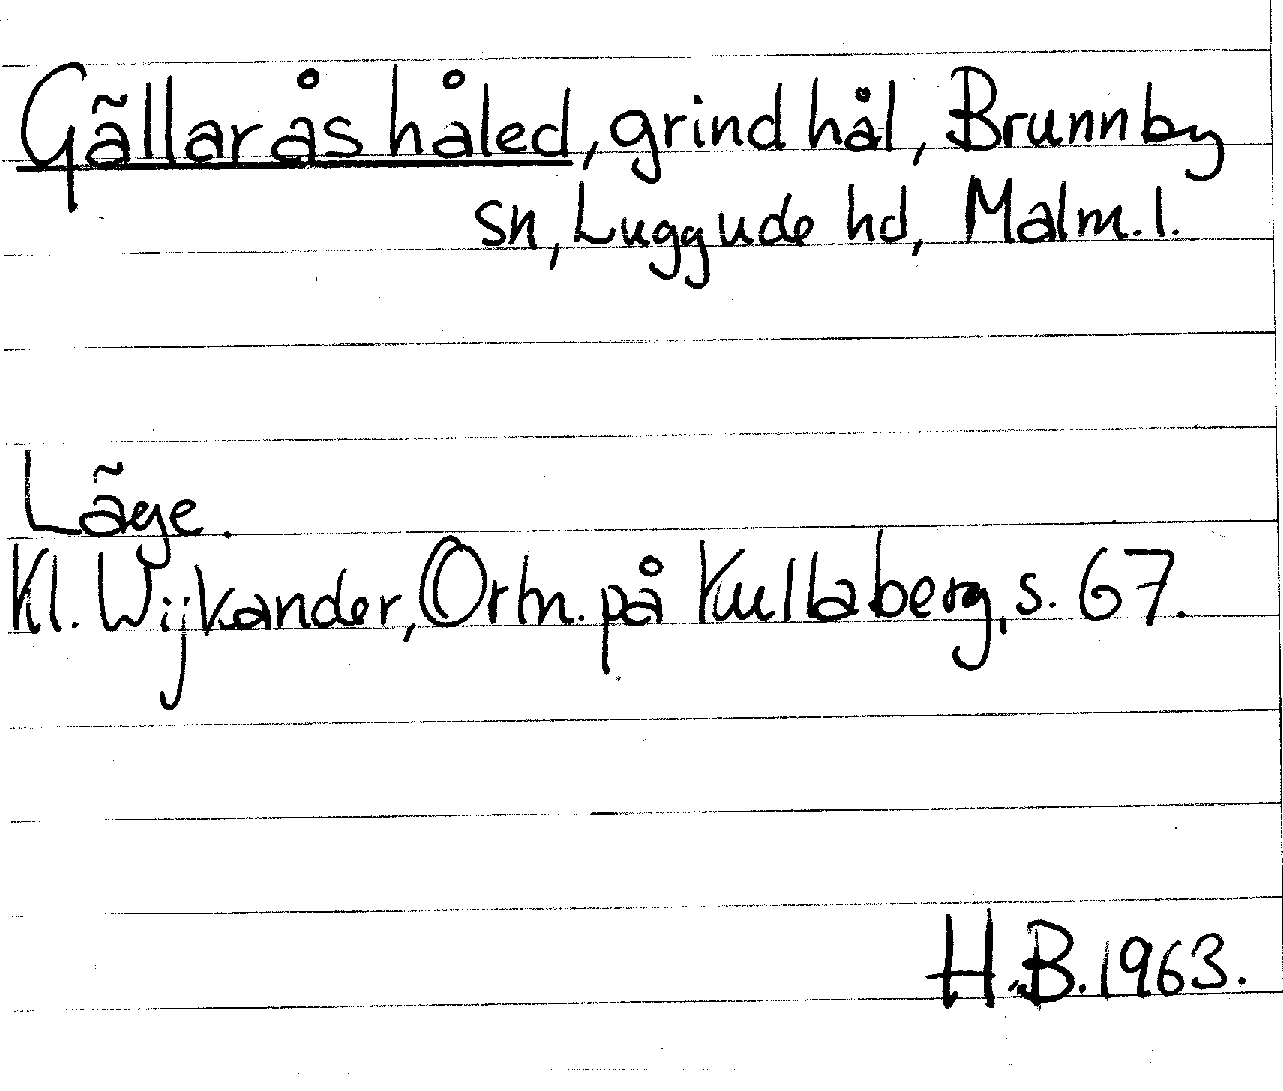 Gällarås håled, grindhål, Brunnby
sn, Luggude hd, Malm. l.
Läge.
Kl. Wijkander, Ortn. på Kullaberg, s. 67.
H.B. 1963.